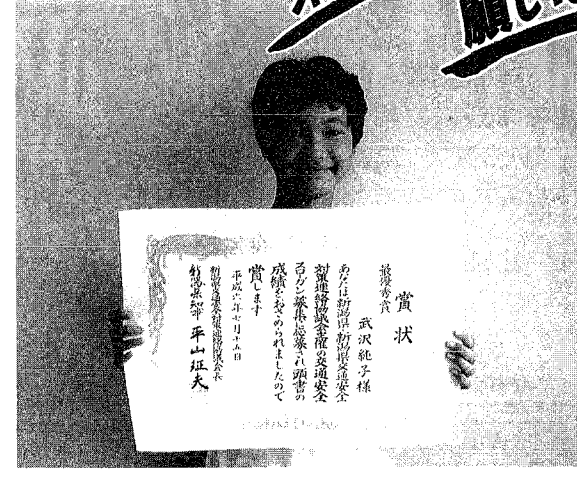 願い
賞状
最優秀賞
武沢純子様
あなたは新潟県・新潟県交通安全
対策連絡協議会主催の交通安全
スローガン募集に応募され頭書の
成績をおさめられましたので
賞します
平成六年七月十五日
新潟県交通安全対策連絡協議会会長
新潟県知事 平山征夫